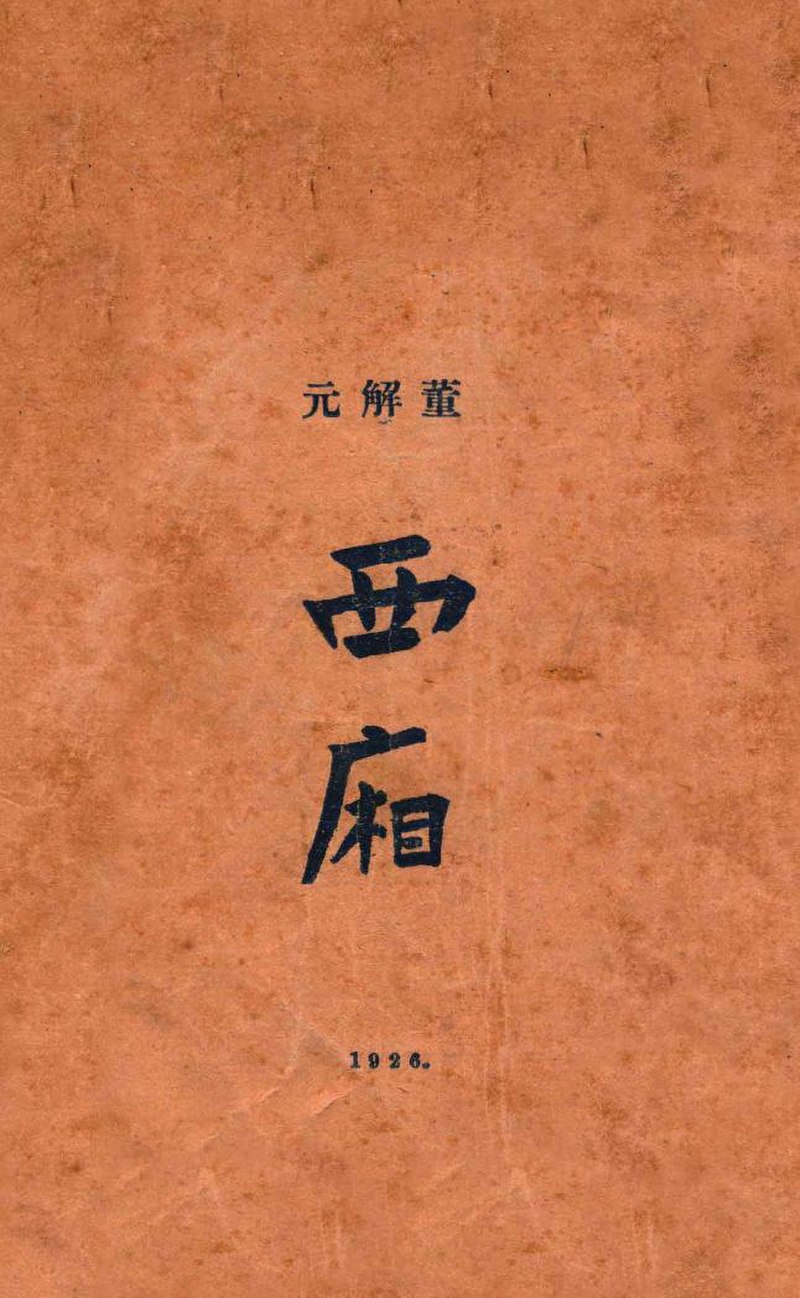 董解元
西
廂
1926.